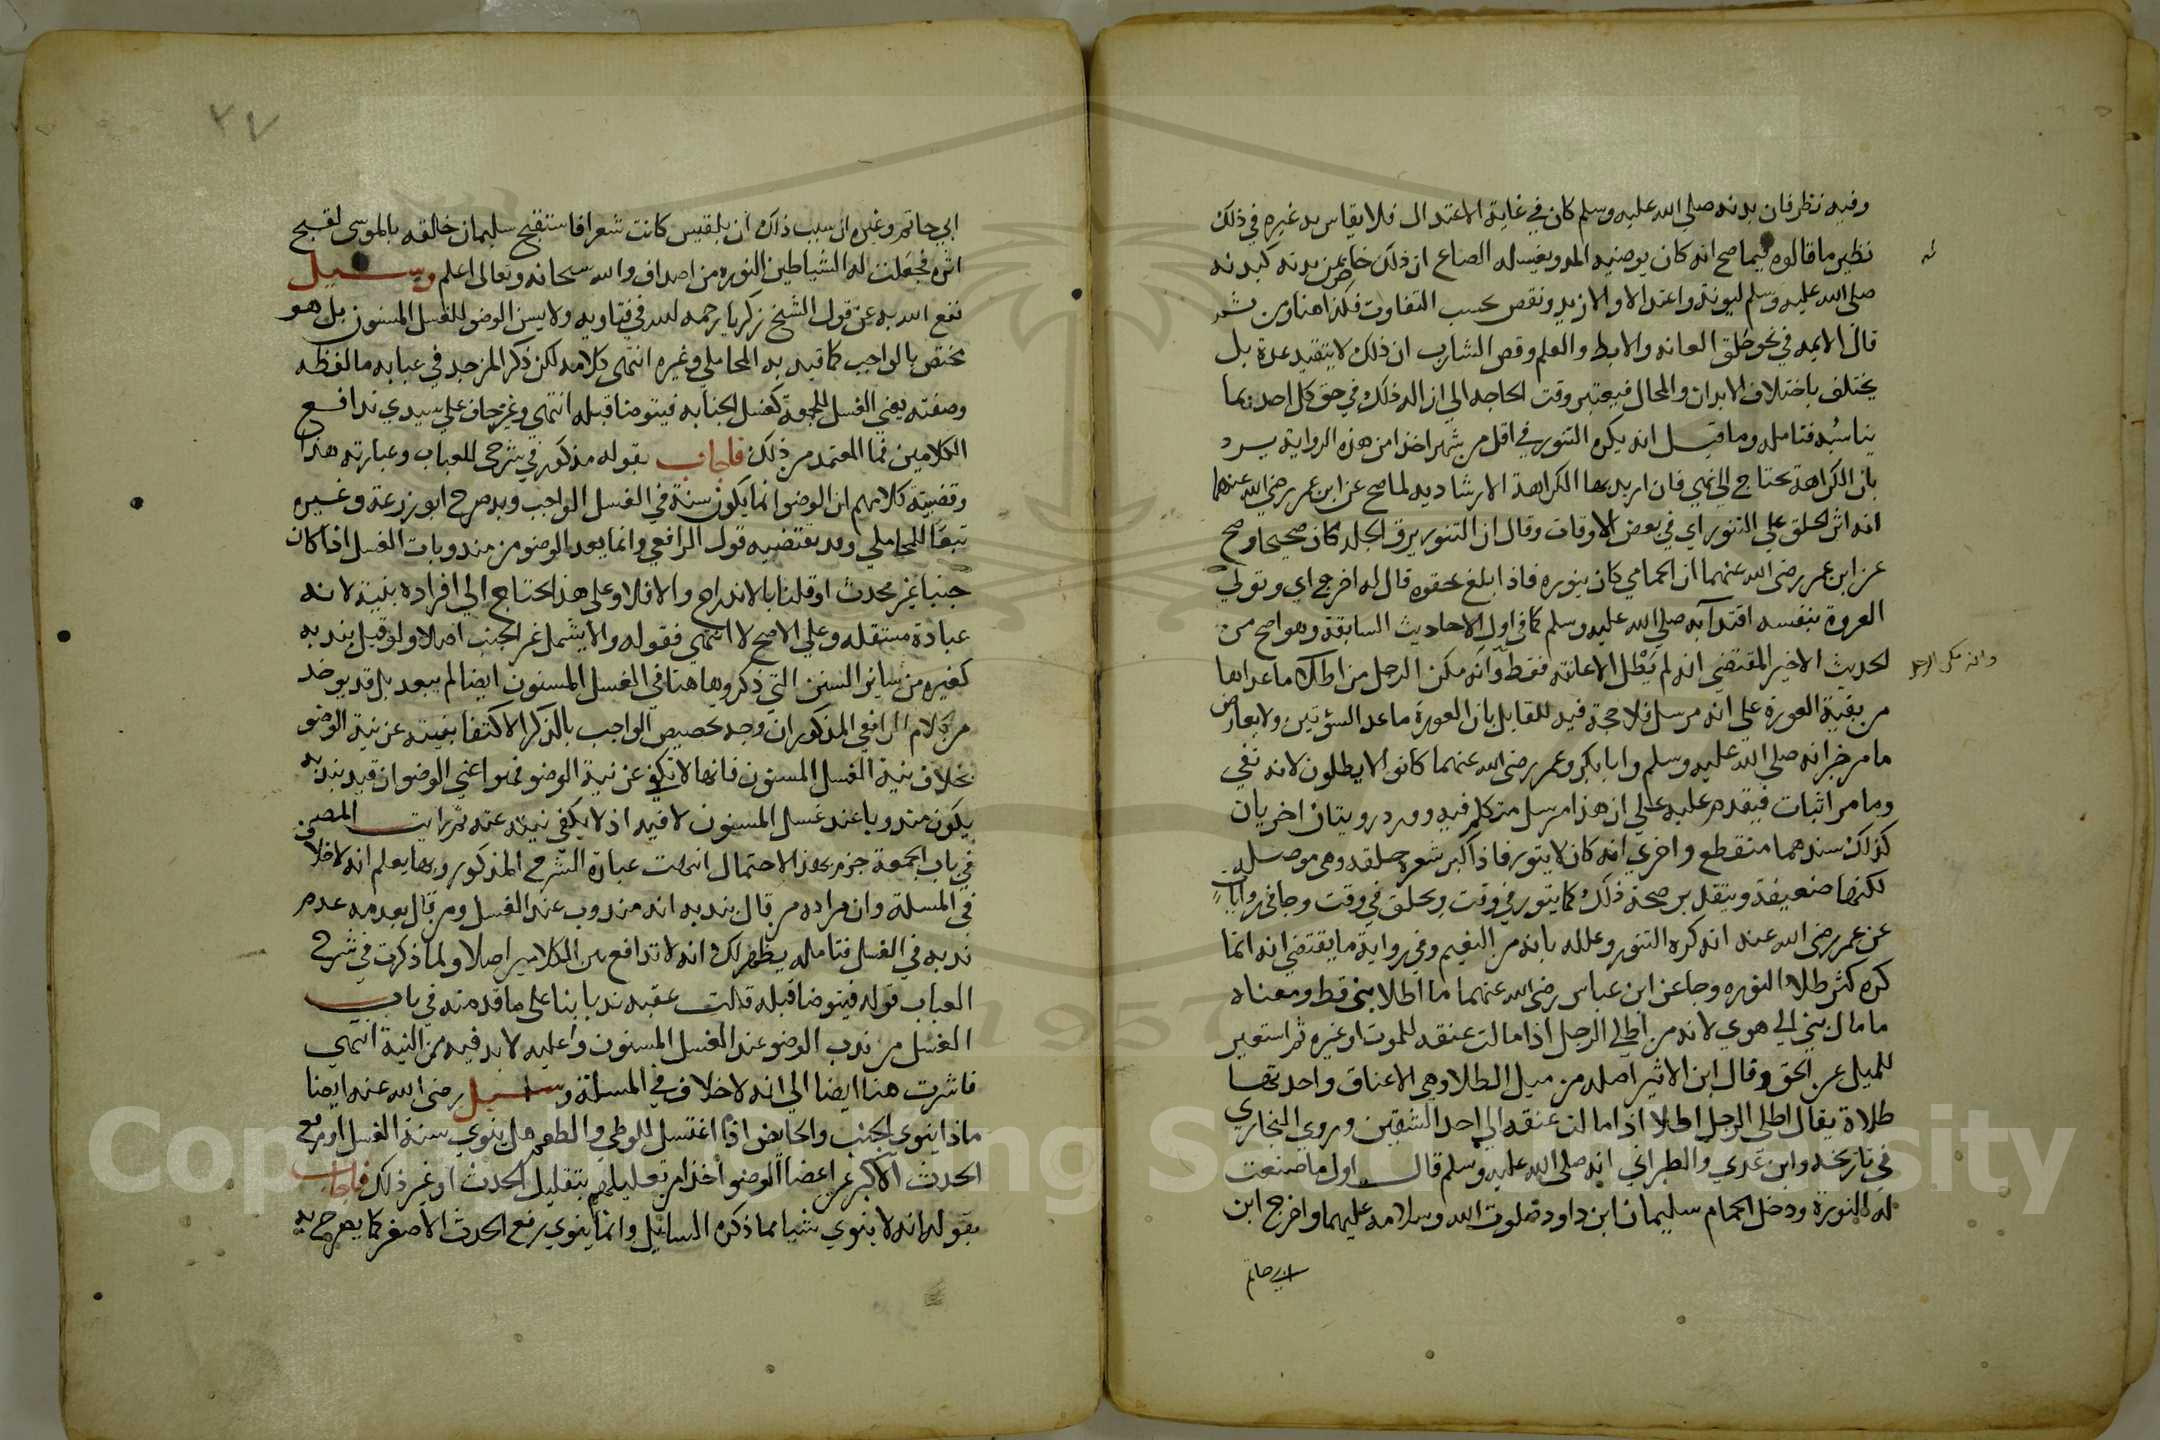 وفيه نظر فان بدنه صلي الله عليه وسلم كان في غاية الاعتدال فلا يقاس به غيره في ذلك
نظير ما قالوه فيما صح انه كان يوضيه المد ويغسله الصاع ان ذلك خاص بمن بدنه كبدنه
صلي الله عليه وسلم ليونة واعتدالا والا زيد ونقص بحسب التفاوت فكذا هنا ومن ثمه
قال الايمه في نحو حلق العانه والابط والقلم وقص الشارب ان ذلك لا يتقيد بمدة بل
يختلف باختلاف الابدان والمحال فيعتبر وقت الحاجه الي ازاله ذلك في حق كل احد بما
يناسبه فتامله وما قيل انه يكره التنور في اقل من شهر اخذا من هذه الرواية يرد
بان الكراهة تحتاج الي نهي فان اريد بها الكراهة الارشاديه لما صح عن ابن عمر رضي الله عنهما
انه اثر الحلق علي التنور اي في بعض الاوقات وقال ان التنور يرق الجلد كان صحيحا وصح
عن ابن عمر رضي الله عنهما ان الحمامي كان ينوره فاذا بلغ حقوه قال له اخرج اي وتولي
العورة بنفسه اقتدا به صلي الله عليه وسلم كما في اول الاحاديث السابقة وهو اصح من
الحديث الاخير المقتضي انه لم يطل الا عانته فقط وانه مكن الرجل من اطلاء ما عداها
وانه مكن الرجل
من بقية العورة على انه مرسل فلا حجة فيه للقايل بان العورة ما عدا السؤتين ولا يعارض
ما مر خبر انه صلي الله عليه وسلم وابا بكر وعمر رضي الله عنهما كانوا لا يطلون لانه نفي
وما مر اثبات فيقدم عليه علي ان هذا مرسل متكلم فيه وورد رويتان اخريان
كذلك سندهما منقطع واخري انه كان لا يتنور فاذا كبر شعره حلقه وهي موصله
لكنها ضعيفة وبتقدير صحة ذلك كما يتنور في وقت ويحلق في وقت وجا في روايات
عن عمر رضي الله عنه انه كره التنور وعلله بانه من النعيم وفي رواية ما يقتضي انه انما
كره كثر طلاء النوره وجا عن ابن عباس رضي الله عنهما ما اطلا نبي قط ومعناه
ما مال نبي الي هوي لانه من اطلي الرجل اذا مالت عنقه للموت او غيره ثم استعير
للميل عن الحق وقال ابن الاثير اصله من ميل الطلا وهي الاعناق واحدتها
طلاة يقال اطلي الرجل اطلا اذا مالت عنقه الي احد الشقين وروي البخاري
في تاريخه وابن عدي والطبراني انه صلي الله عليه وسلم قال اول ما صنعت
له النورة ودخل الحمام سليمان ابن داود صلوت الله وسلامه عليهما واخرج ابن
ابي حاتم
٢٧
ابي حاتم وغيره ان سبب ذلك ان بلقيس كانت شعرا فاستقبح سليمان خالقه بالموسى لقبح
اثره فجعلت له الشياطين النوره من اصداف والله سبحانه وتعالى اعلم وسيل
نفع الله به عن قول الشيخ زكريا رحمه الله في فتاويه ولا يسن الوضو للغسل المسنون بل هو
مختص بالواجب كما قيد به المحاملي وغيره انتهى كلامه لكن ذكر المزجد في عبابه ما لفظه
وصفته يعني الغسل للجمعة كغسل الجنابه فيتوضا قبله انتهى وغير خاف علي سيدي تدافع
الكلامين فما المعتمد من ذلك فاجاب بقوله مذكور في شرحي للعباب وعبارته هذا
وقضية كلامهم ان الوضو انما يكون سنة في الغسل الواجب وبه صرح ابو زرعة وغيره
تبعا للمحاملي وبه يقتضيه قول الرافعي وانما يعد الوضو من مندوبات الغسل اذا كان
جنبا غير محدث او قلنا بالاندراج والا فلا وعلى هذا يحتاج الي افراده بنية لانه
عبادة مستقله وعلي الاصح لا انتهي فقوله والا يشمل غير الجنب اصلا ولو قيل بندبه
كغيره من ساير السنن التي ذكروها هنا في الغسل المسنون ايضا لم يبعد بل قد يوخذ
من كلام الرافعي المذكور ان وجه تخصيص الواجب بالذكر الاكتفا بنيته عن نية الوضو
بخلاف نية الغسل المسنون فانها لا تكفي عن نية الوضو فهو اعني الوضو ان قيل بندبه
يكون مندوبا عند غسل المسنون لا فيه اذ لا يكفي نيته عنه ثم رايت المصنف
في باب الجمعة جزم بهذا الاحتمال انتهت عبارة الشرح المذكور وبها يعلم انه لا خلاف
في المسلة وان مراده من قال بندبه انه مندوب عند الغسل ومن قال بعدمه عدم
ندبه في الغسل فتامله يظهر لك انه لا تدافع بين الكلامين اصلا ولما ذكرت في شرح
العباب قوله فيتوضا قبله قلت عقبه ندبا بنا على ما قدمته في باب
الغسل من ندب الوضو عند الغسل المسنون وعليه لا بد فيه من النية انتهي
فاشرت هنا ايضا الي انه لا خلاف في المسلة وسيل رضي الله عنه ايضا
ماذا ينوي الجنب والحايض اذا اغتسل للوطي والطهر هل ينوي سنة الغسل او رفع
الحدث الاكبر عن اعضا الوضو اخذا من تعليلهم بتقليل الحدث او غير ذلك فاجاب
بقوله انه لا ينوي شيا مما ذكره السايل وانما ينوي رفع الحدث الاصغر كما يصرح به